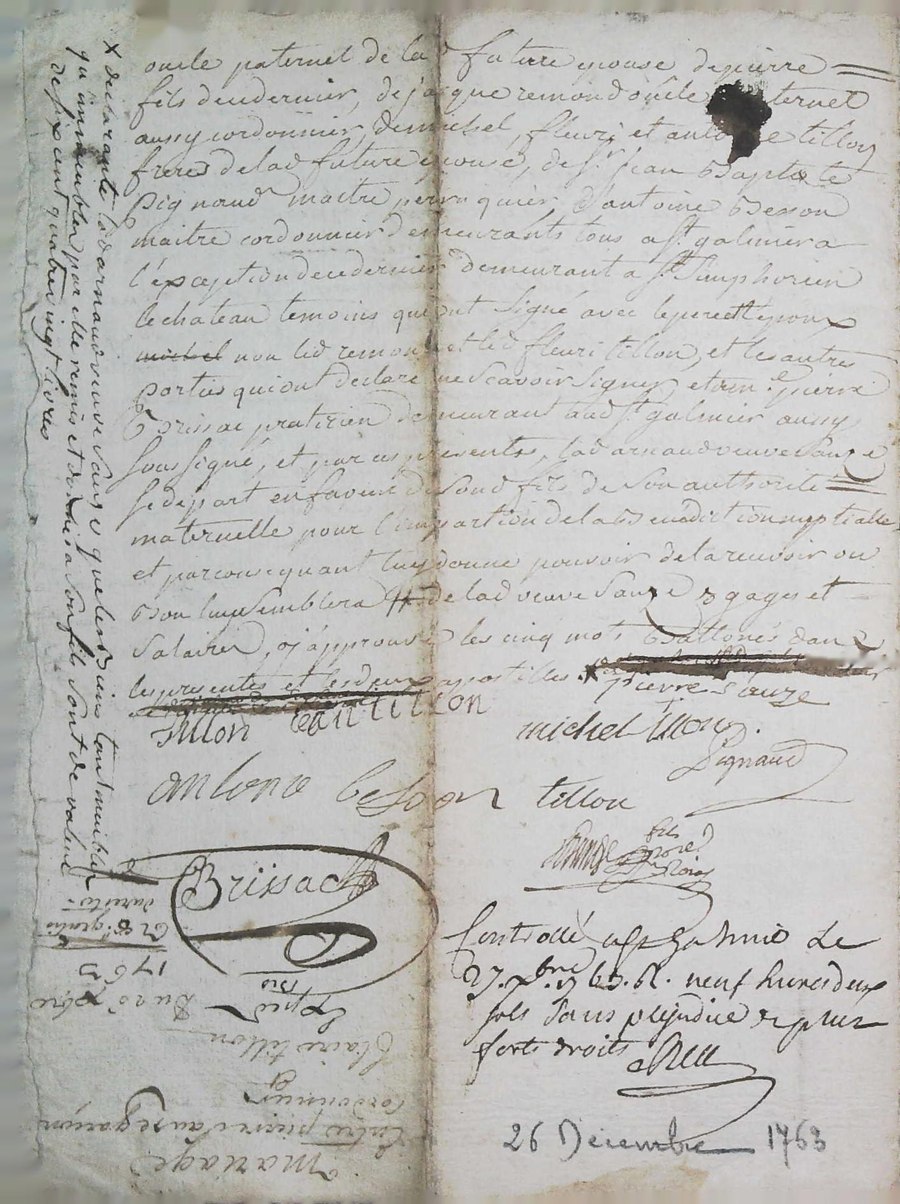 oncle paternel de lad future epouse de pierre
fils dendernier, de jacque remond oncle maternel
aussy cordonnier, de michel, fleuri et antoine tillon
freres de lad future epouse, de Sr jean Baptiste
Pignaud maitre perruquier d'antoine Besson
maitre cordonnier demeurants tous a St galmier a
l'exception de ce dernier demeurant a St Simphorien
le chateau temoins qui ont signé avec le pere et epoux
michel non led remond et led fleuri tillon, et les autres
parties qui ont declaré ne scavoir signer et me pierre
Brissac praticien demeurant aud St galmier aussy
soussigné, et par ces présentes, lad arnaud veuve Sauze
se depart en faveur de sond fils de son authorité
maternelle pour l'impartion de la Bénédiction nuptialle
et par consequant luy donne pouvoir de la recevoir ou
bon luy semblera de lad veuve Sauze gages et
salaires, ay approuvé les cinq mots Battonés dans
les presentes et les deux apostilles
X declarante lad arnaud veuve Sauze que les Biens tant meubles
qu'immeubles par elle remis et donnés a son fils sont de valeur
de six cent quatre vingt livres
pierre Sauze
tillon Jean tillon
michel tillon
Pignaud
antone besson tillon
Brissac
fils
Controllé a St Galmier le
27. xbre 1763. R. neuf livres deux
sols sans prejudice de plus
forts droits
26 Decembre 1763
mariage
Entre pierre Sauze garçon
cordonnier
et
Claire tillon
Du 26 xbre
1763
Exped